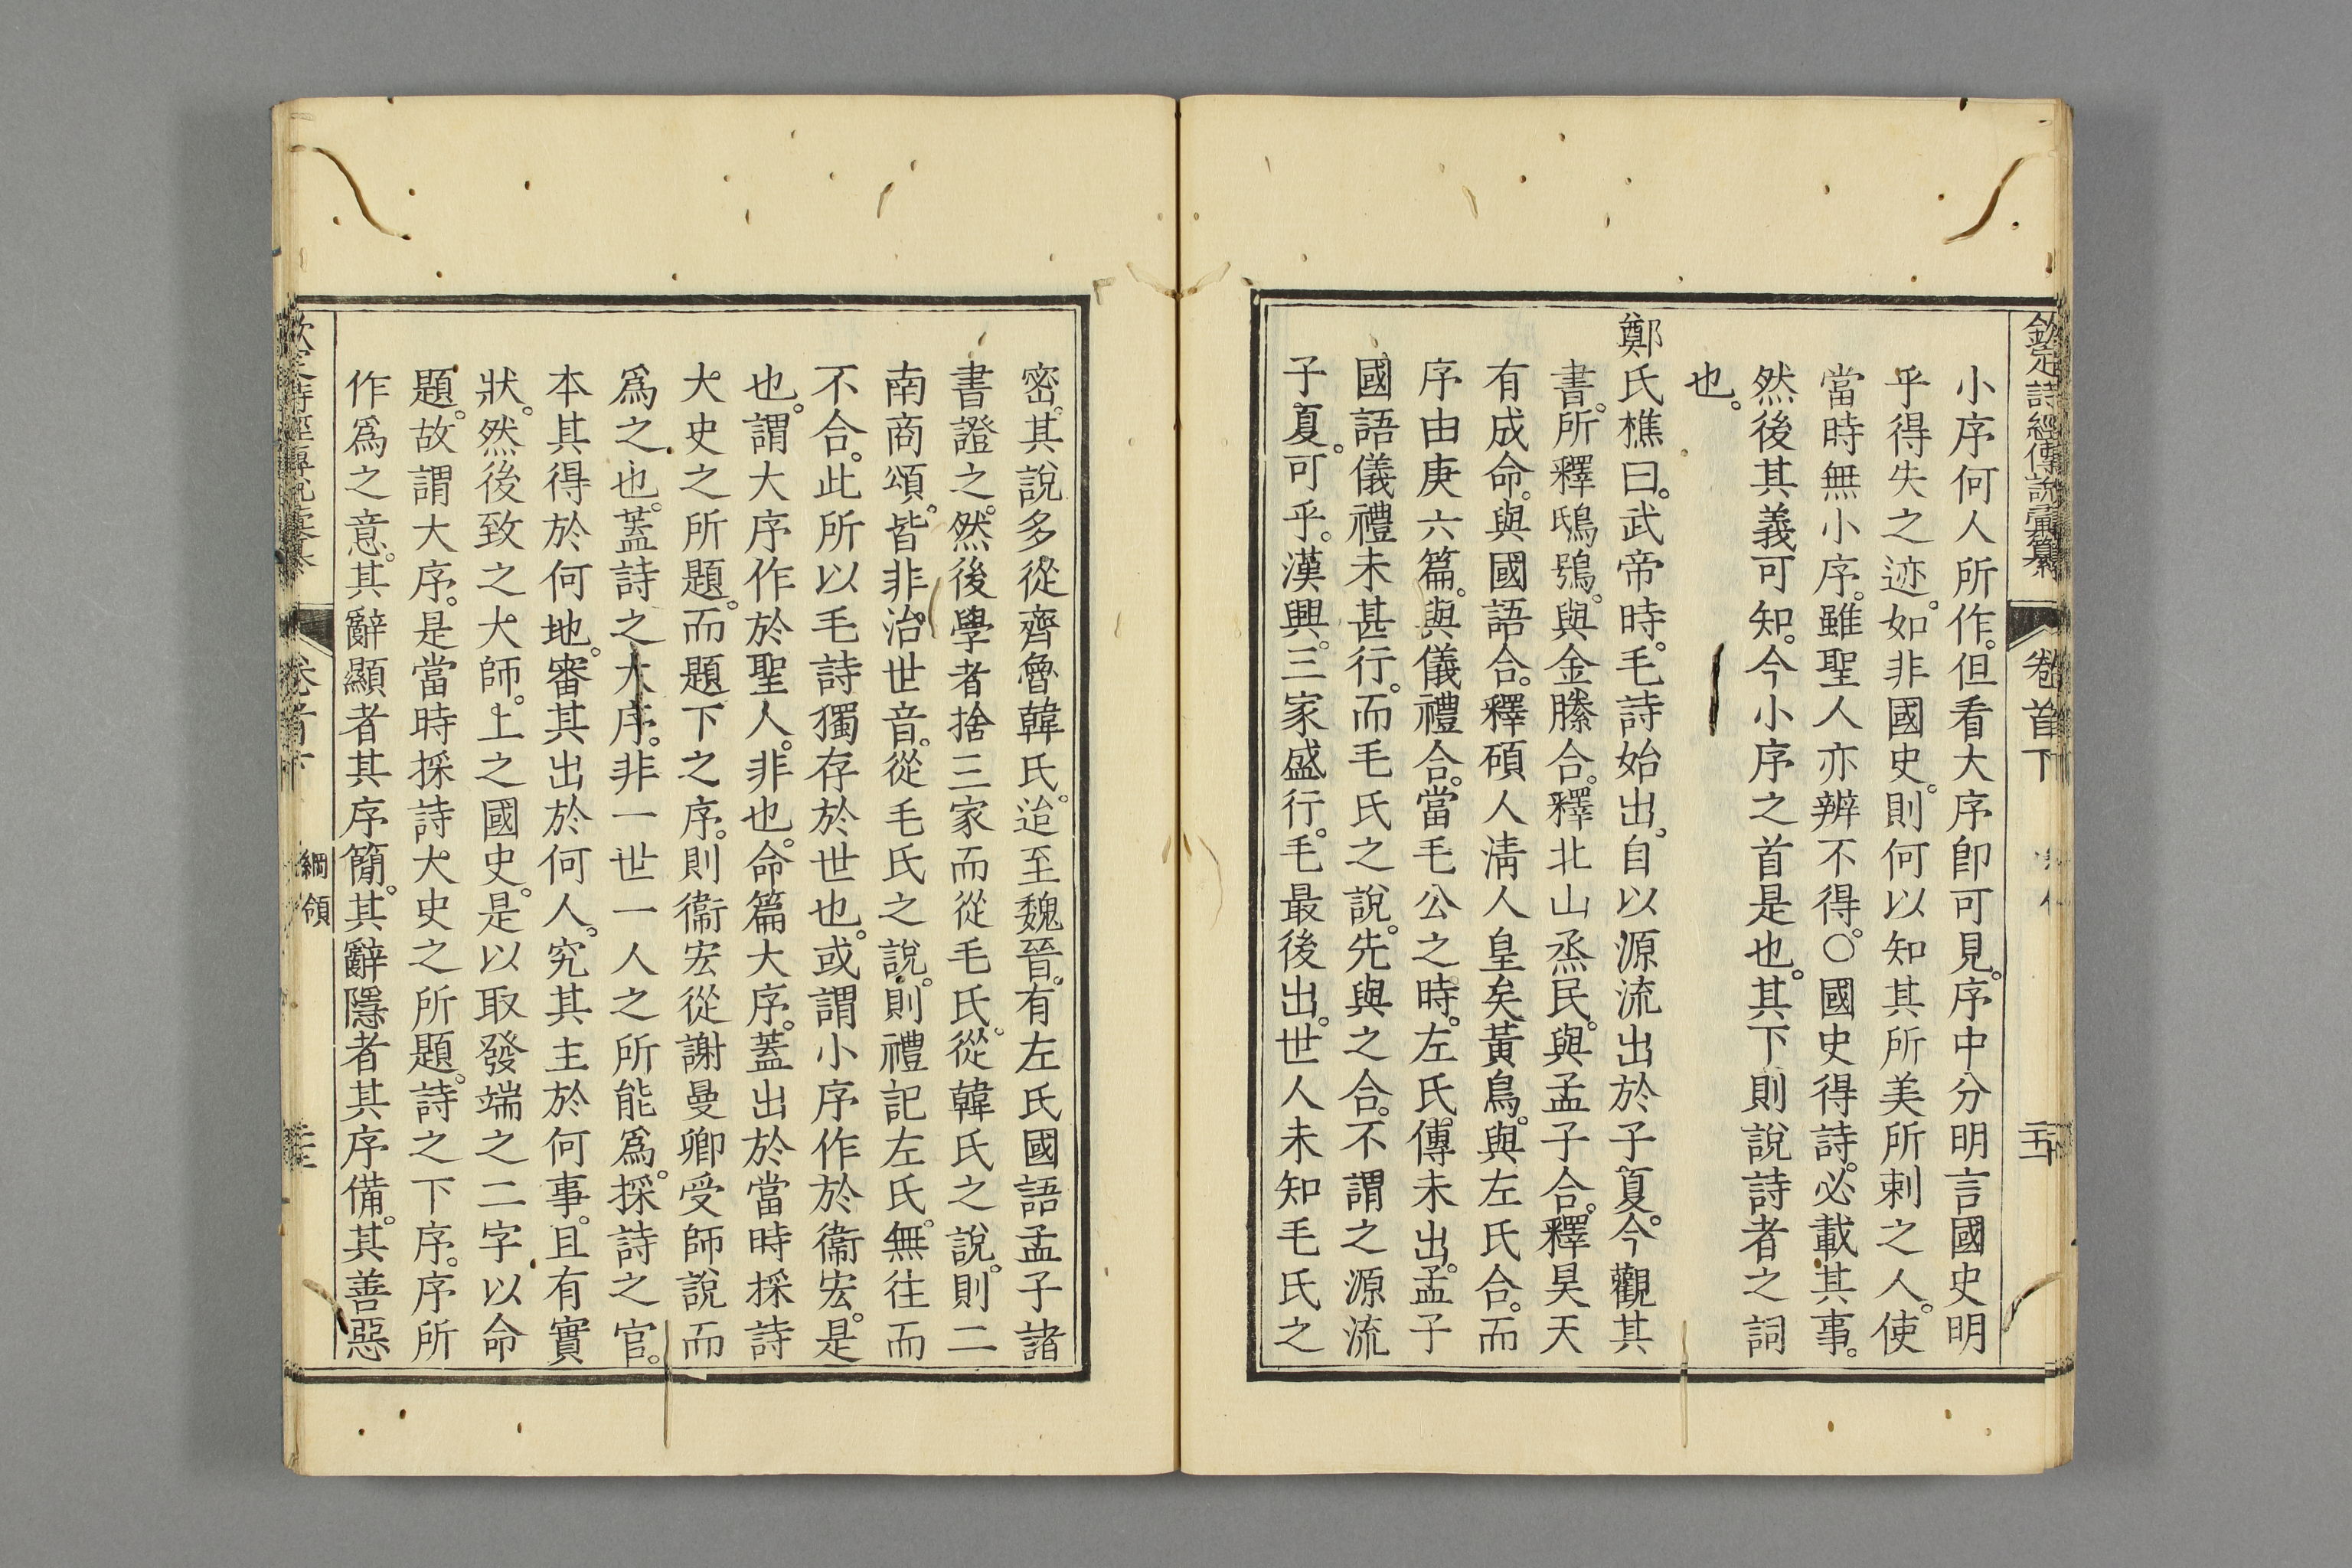 欽定詩經傳說彙纂 卷首下
小序何人所作。但看大序卽可見。序中分明言國史明
乎得失之迹。如非國史。則何以知其所美所刺之人。使
當時無小序。雖聖人亦辨不得。○國史得詩。必載其事。
然後其義可知。今小序之首是也。其下則說詩者之詞
也。
鄭氏樵曰。武帝時。毛詩始出。自以源流出於子夏。今觀其
書。所釋鴟鴞。與金縢合。釋北山烝民。與孟子合。釋昊天
有成命。與國語合。釋碩人淸人皇矣黃鳥。與左氏合。而
序由庚六篇。與儀禮合。當毛公之時。左氏傳未出。孟子
國語儀禮未甚行。而毛氏之說。先與之合。不謂之源流
子夏。可乎。漢興。三家盛行。毛最後出。世人未知毛氏之
密。其說多從齊魯韓氏。迨至魏晉。有左氏國語孟子諸
書證之。然後學者捨三家而從毛氏。從韓氏之說。則二
南商頌。皆非治世音。從毛氏之說。則禮記左氏。無往而
不合。此所以毛詩獨存於世也。或謂小序作於衞宏。是
也。謂大序作於聖人。非也。命篇大序。蓋出於當時採詩
大史之所題。而題下之序。則衞宏從謝曼卿受師說而
爲之也。蓋詩之大序。非一世一人之所能爲。採詩之官。
本其得於何地。審其出於何人。究其主於何事。且有實
狀。然後致之大師。上之國史。是以取發端之二字以命
題。故謂大序。是當時採詩大史之所題。詩之下序。序所
作爲之意。其辭顯者其序簡。其辭隱者其序備。其善惡
卷首下 綱領